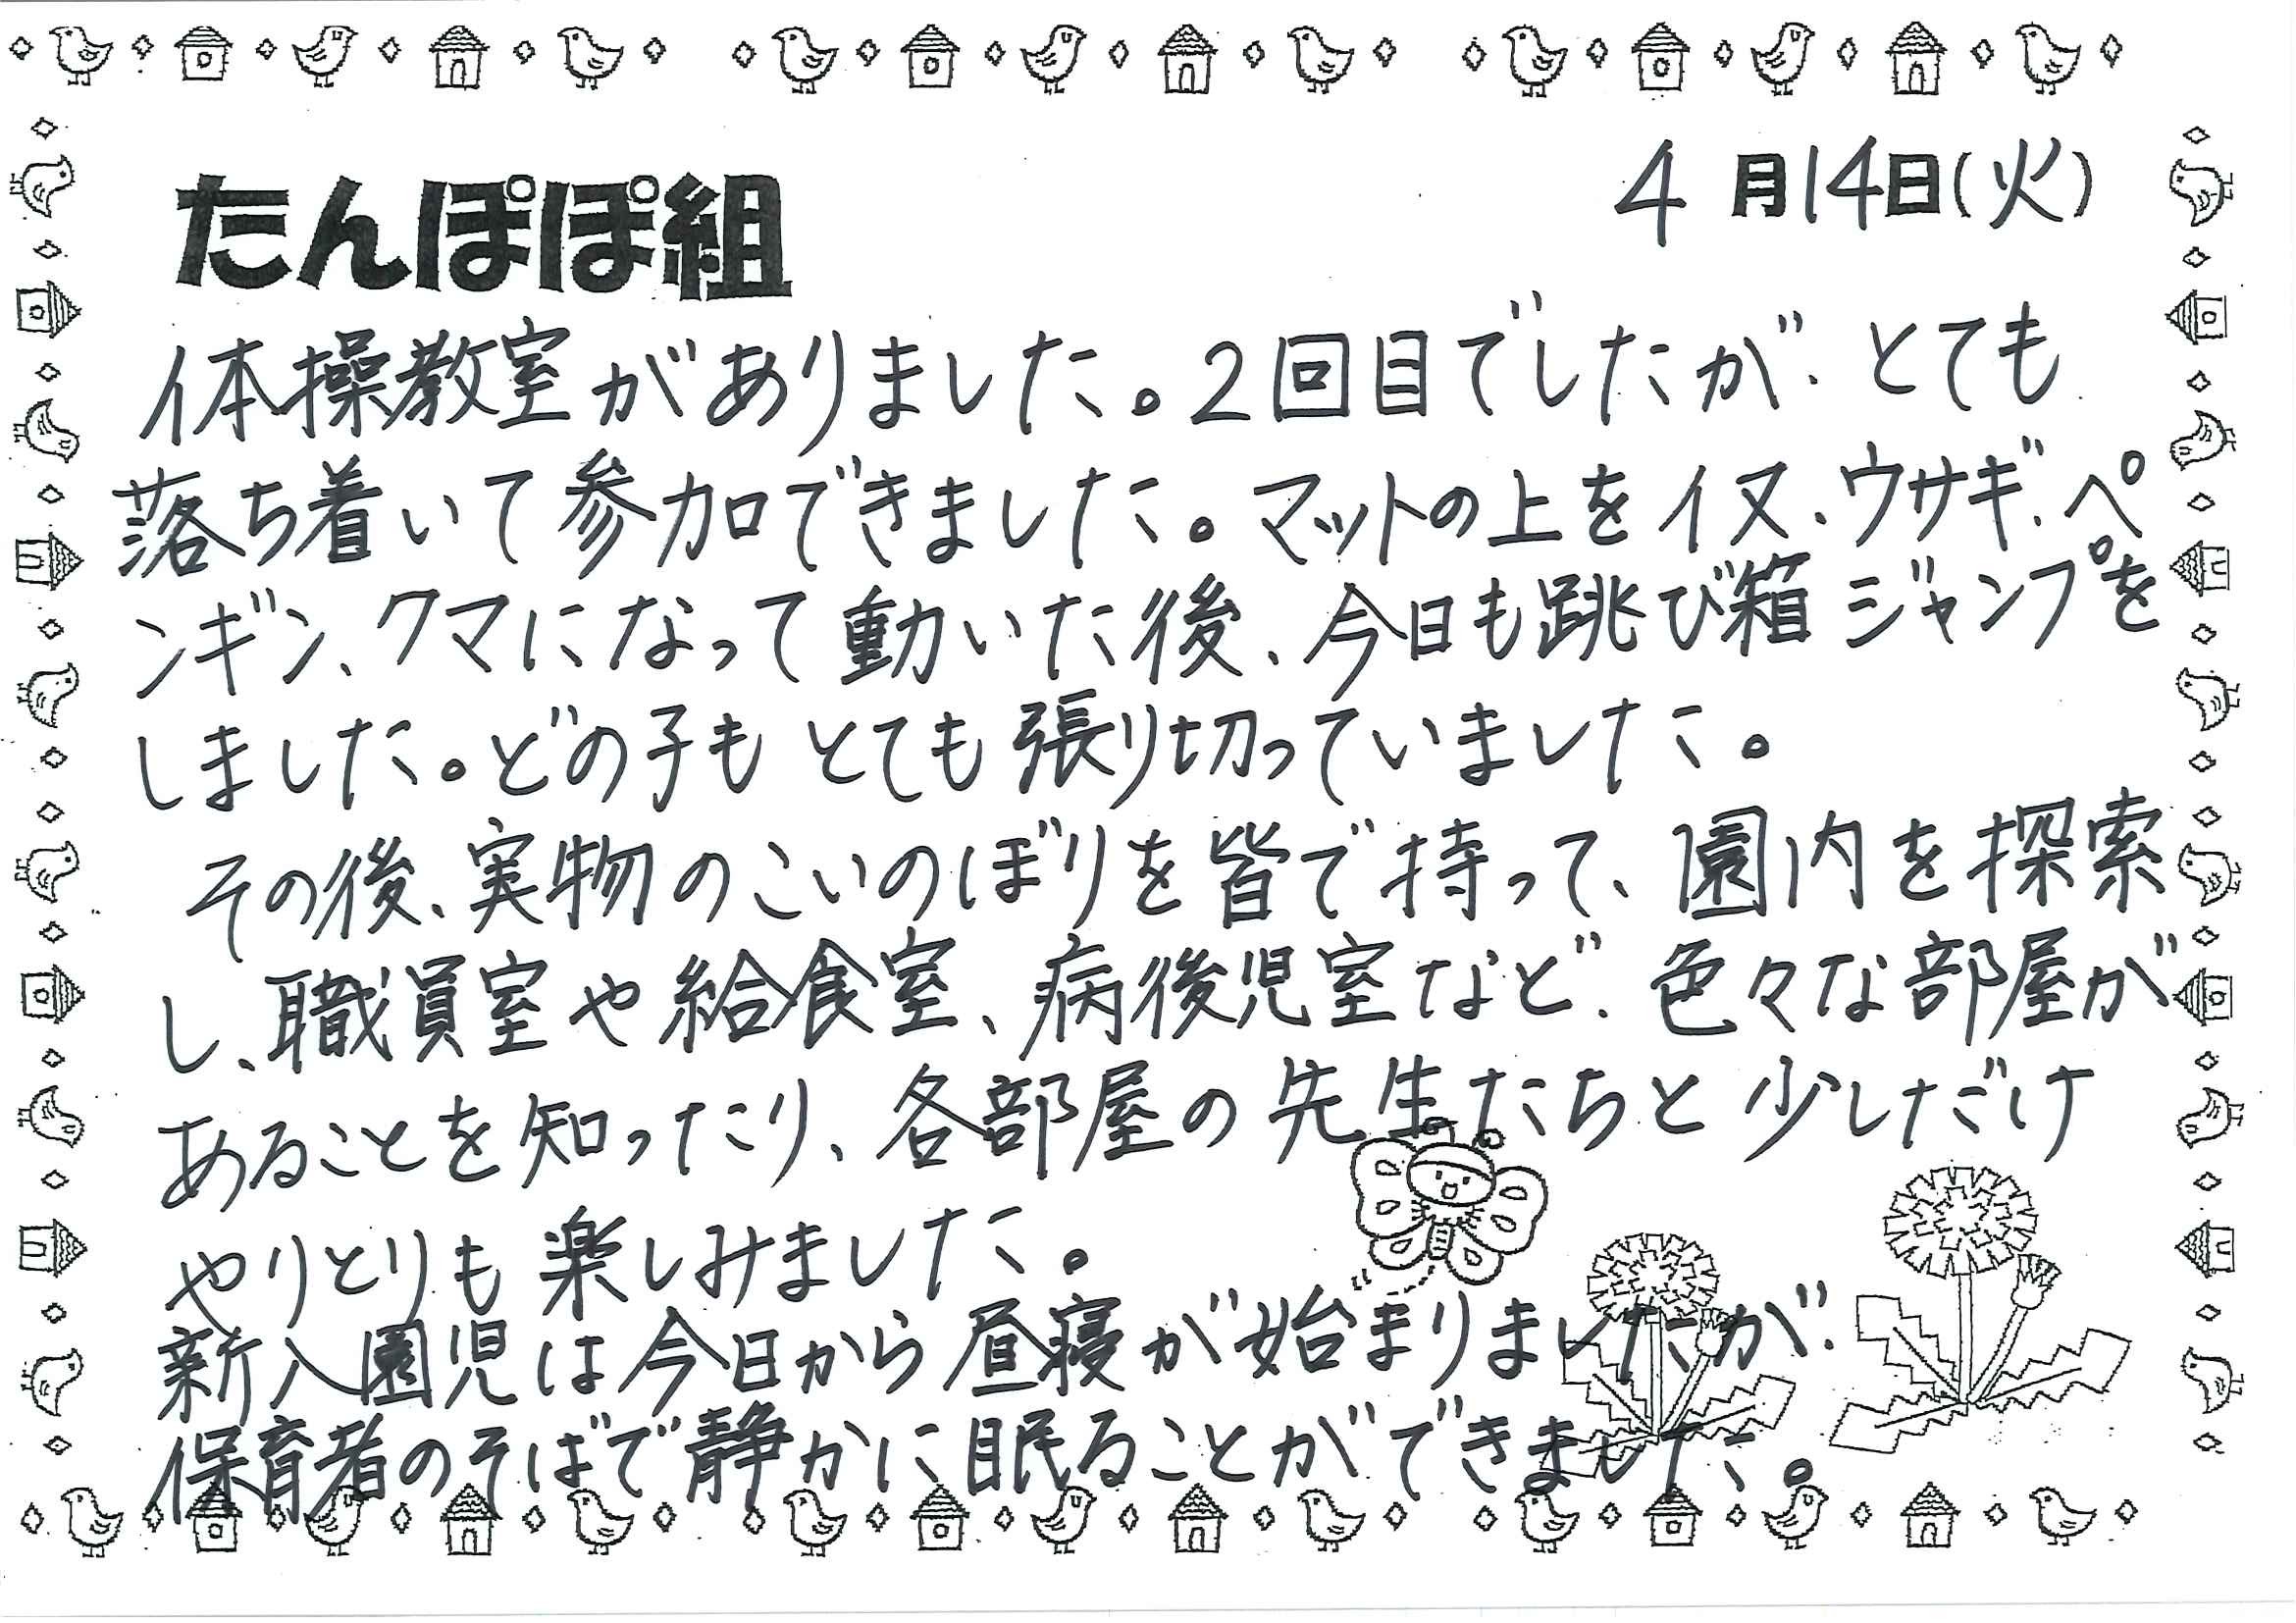 4月14日(火)
たんぽぽ組
体操教室がありました。2回目でしたが、とても
落ち着いて参加できました。マットの上をイヌ、ウサギ、ペ
ンギン、クマになって動いた後、今日も跳び箱ジャンプを
しました。どの子もとても張り切っていました。
その後、実物のこいのぼりを皆で持って、園内を探索
し、職員室や給食室、病後児室など、色々な部屋が
あることを知ったり、各部屋の先生たちと少しだけ
やりとりも楽しみました。
新入園児は今日から昼寝が始まりましたが、
保育者のそばで静かに眠ることができました。